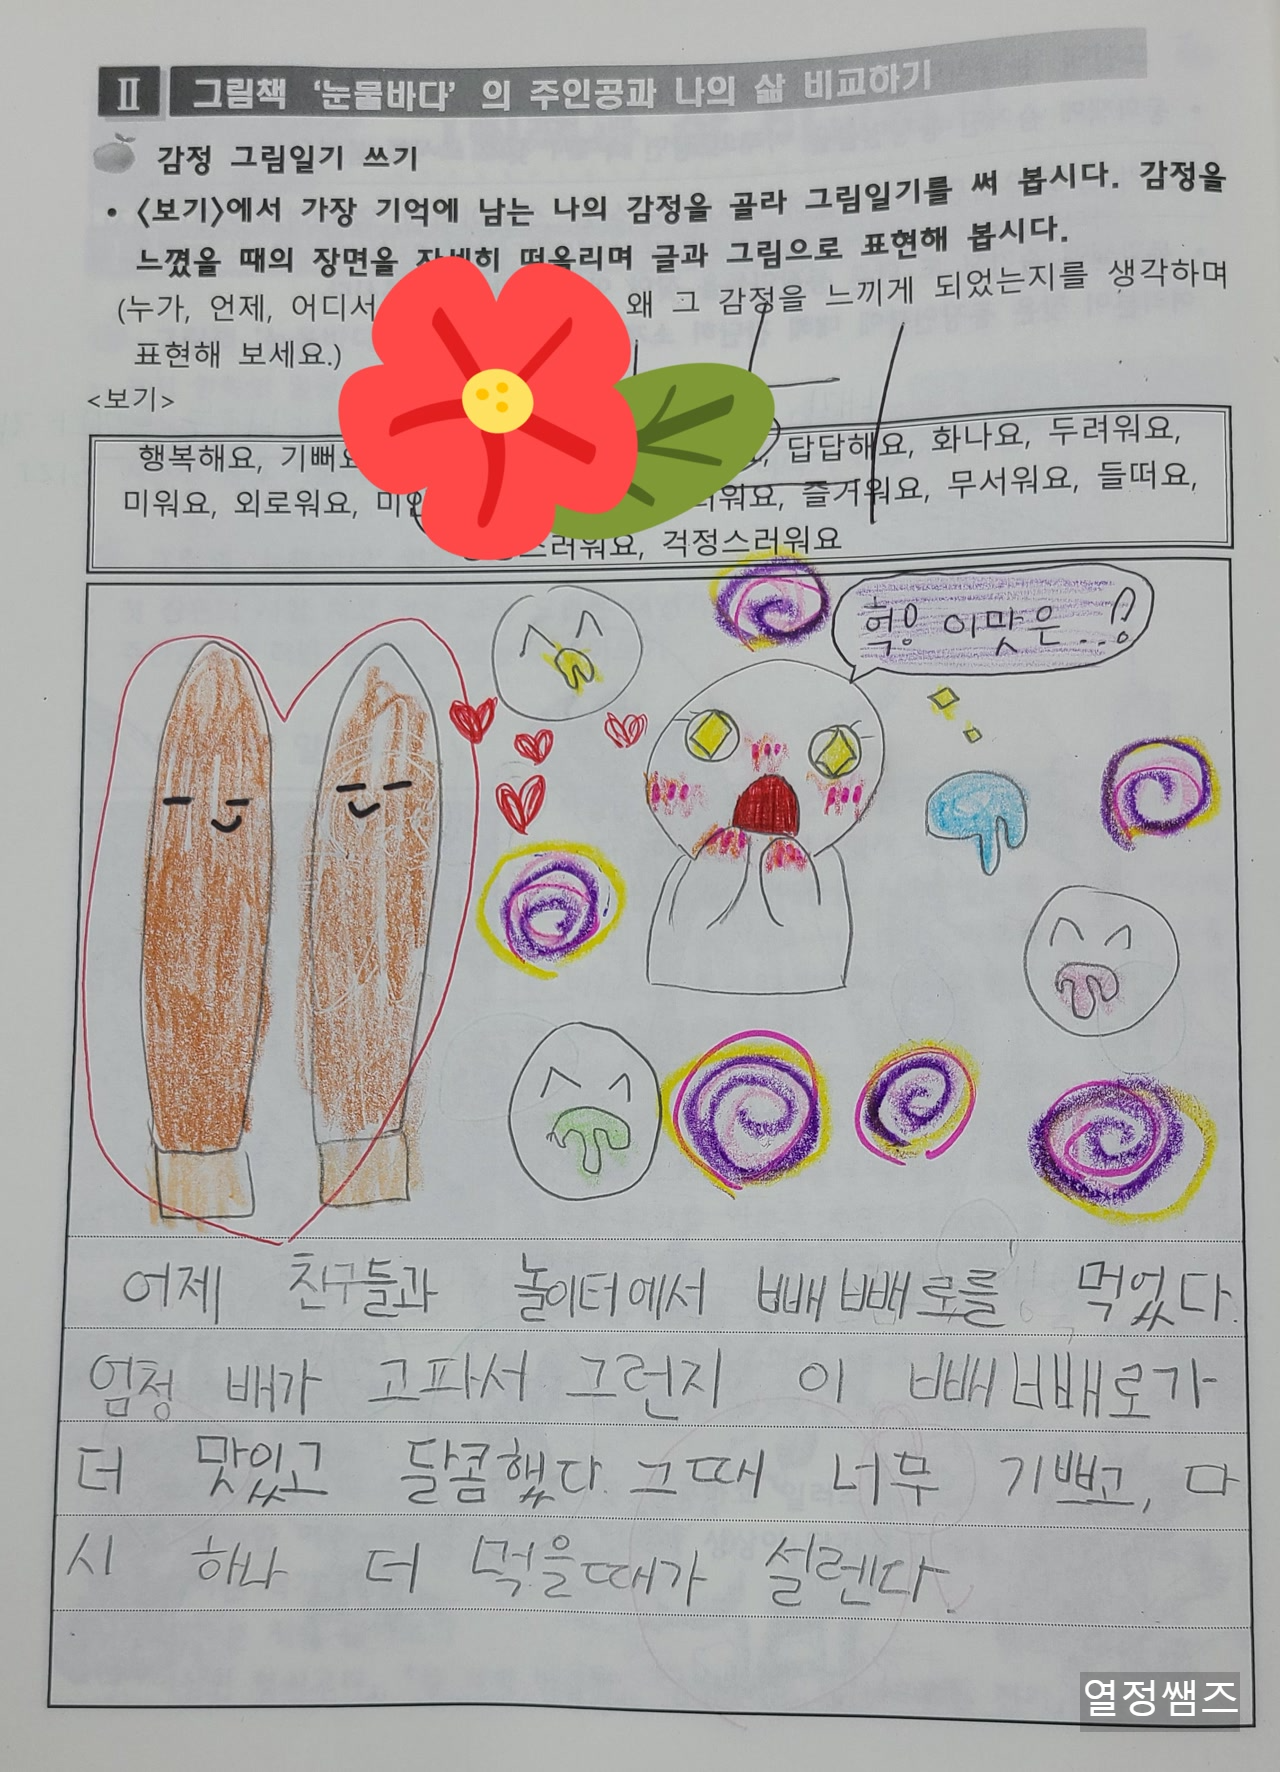 Ⅱ 그림책 ‘눈물바다’ 의 주인공과 나의 삶 비교하기
감정 그림일기 쓰기
• <보기>에서 가장 기억에 남는 나의 감정을 골라 그림일기를 써 봅시다. 감정을
느꼈을 때의 장면을 자세히 떠올리며 글과 그림으로 표현해 봅시다.
(누가, 언제, 어디서 왜 그 감정을 느끼게 되었는지를 생각하며
표현해 보세요.)
<보기>
행복해요, 기뻐요 답답해요, 화나요, 두려워요,
미워요, 외로워요, 즐거워요, 무서워요, 들떠요,
스러워요, 걱정스러워요
헉! 이맛은..!
어제 친구들과 놀이터에서 빼빼로를 먹었다.
엄청 배가 고파서 그런지 이 빼빼로가
더 맛있고 달콤했다. 그때 너무 기쁘고, 다
시 하나 더 먹을때가 설렌다.
열정쌤즈